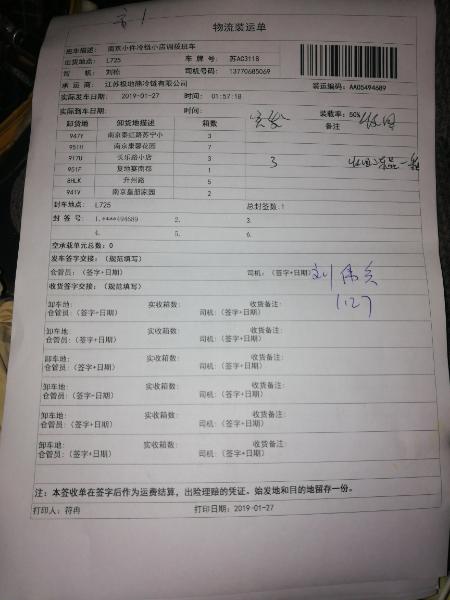 物流装运单
班车描述: 南京小件冷链小店调拨班车
出货地点: L725 车牌号: 苏A03118
驾驶: 刘栋 司机号码: 13770685069
承运商: 江苏极地熊冷链有限公司 装运编码: AA05494689
实际发车日期: 2019-01-27 时间: 01:57:18
实际到车日期: 时间: 装载率: 50%
卸货地 卸货地描述 箱数 实发 备注
947Y 南京秦虹路苏宁小 3
951H 南京康馨花园 7
917U 长乐路小店 3 3
951F 复地宴南都 1
8HLK 升州路 5
941V 南京皇册家园 2
封车地点: L725 总封签数:1
封签号: 1.****494689 2. 3.
4. 5. 6.
空承载单元总数: 0
发车签字交接: (规范填写)
仓管员: (签字+日期) 司机: (签字+日期)
1.27
收货签字交接: (规范填写)
卸车地: 实收箱数: 收货备注:
仓管员: (签字+日期) 司机: (签字+日期)
卸车地: 实收箱数: 收货备注:
仓管员: (签字+日期) 司机: (签字+日期)
卸车地: 实收箱数: 收货备注:
仓管员: (签字+日期) 司机: (签字+日期)
卸车地: 实收箱数: 收货备注:
仓管员: (签字+日期) 司机: (签字+日期)
卸车地: 实收箱数: 收货备注:
仓管员: (签字+日期) 司机: (签字+日期)
卸车地: 实收箱数: 收货备注:
仓管员: (签字+日期) 司机: (签字+日期)
注: 本签收单在签字后作为运费结算, 出险理赔的凭证。始发地和目的地留存一份。
打印人员: 符冉 打印日期: 2019-01-27